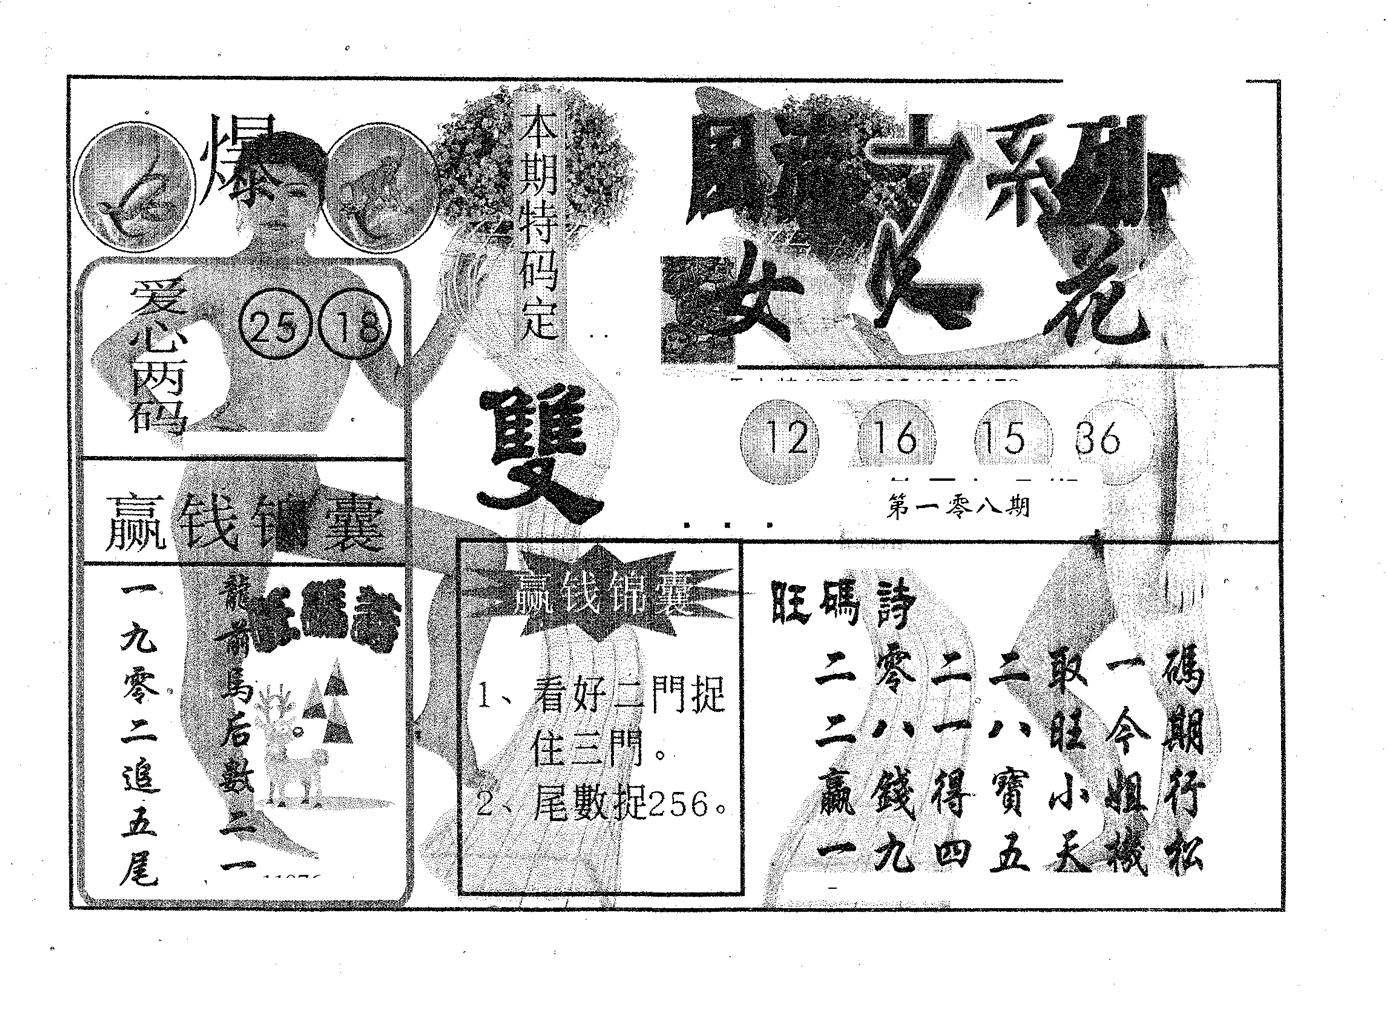 爆
爱心两码
25 18
赢钱锦囊
旺碼詩
龍前馬后數二一
一九零二追五尾
本期特码定
雙
赢钱锦囊
1、看好二門捉
住三門。
2、尾數捉256。
之系列
女人花
12 16 15 36
第一零八期
旺碼詩
二零二二取一碼
二八一八旺今期
贏錢得寶小姐行
一九四五天機松